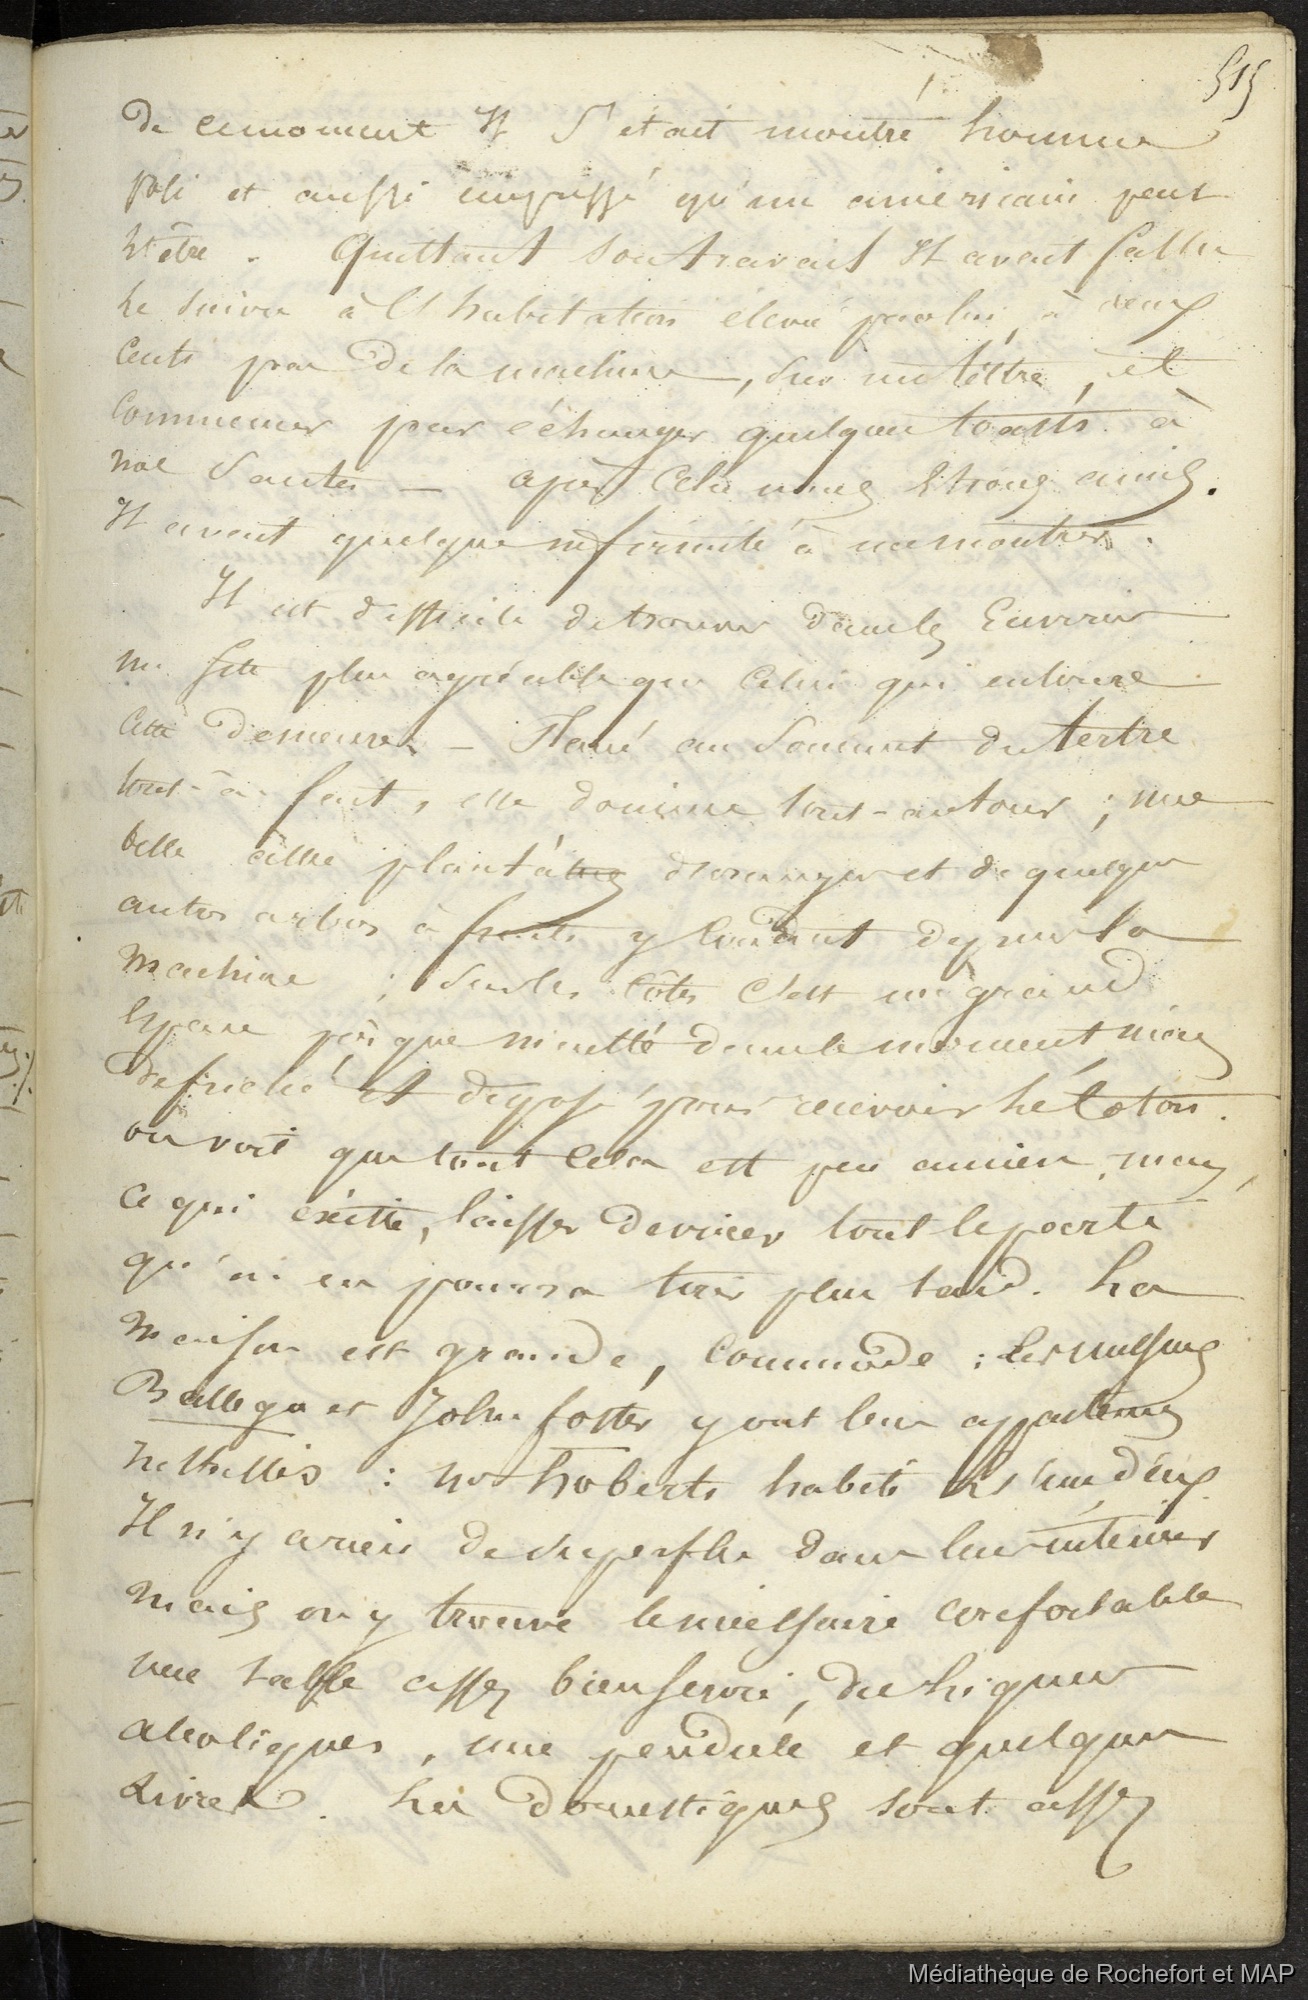 515
de ce moment Il s'était montré homme
poli et aussi empressé qu'un américain peut
l'être. Quittant son travail Il avait fallu
le suivre à l'habitation élevé par lui, à deux
cents pas de la machine, sur un tertre, et
commencer par échanger quelques toasts à
nos santés — après cela nous étions amis.
Il avait quelque infirmité à me montrer.
Il est difficile de trouver dans les Environs
un site plus agréable que celui qui entoure
cette demeure — Placé au Sommet du tertre
tout-à-fait, elle domine tout-autour ; une
belle allée planté d'orangers et de quelques
autres arbres à fruits y conduit depuis la
machine ; sur les côtés c'est un grand
espace presque inculte dans le moment mais
défriché et disposé pour recevoir le coton.
on voit que tout cela est peu ancien, mais
ce qui existe, laisse deviner tout le parti
qu'on en pourra tirer plus tard. La
maison est grande, commode ; Les messieurs
et John foster y ont leur appartemens
: mr Roberts habite
Il n'y a rien de superflu dans leur intérieur
mais on y trouve le nécessaire confortable
une table assez bien servie, des liqueurs
alcoliques, une pendule et quelques
Livres. Les domestiques sont assez
Médiathèque de Rochefort et MAP